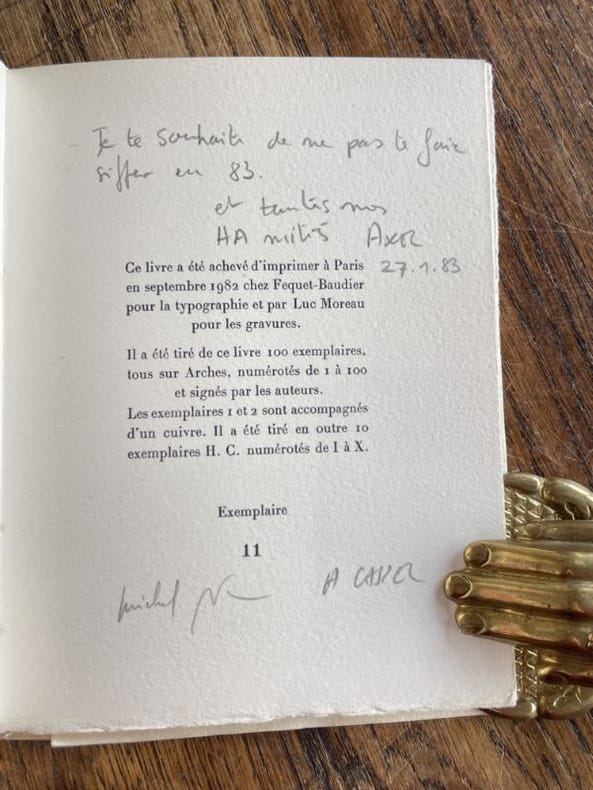 Je te souhaite de ne pas te faire
siffler en 83.
et toutes mes
HA mitiés AXEL
27.1.83
Ce livre a été achevé d'imprimer à Paris
en septembre 1982 chez Fequet-Baudier
pour la typographie et par Luc Moreau
pour les gravures.
Il a été tiré de ce livre 100 exemplaires,
tous sur Arches, numérotés de 1 à 100
et signés par les auteurs.
Les exemplaires 1 et 2 sont accompagnés
d'un cuivre. Il a été tiré en outre 10
exemplaires H. C. numérotés de I à X.
Exemplaire
11
michel A CASSEL